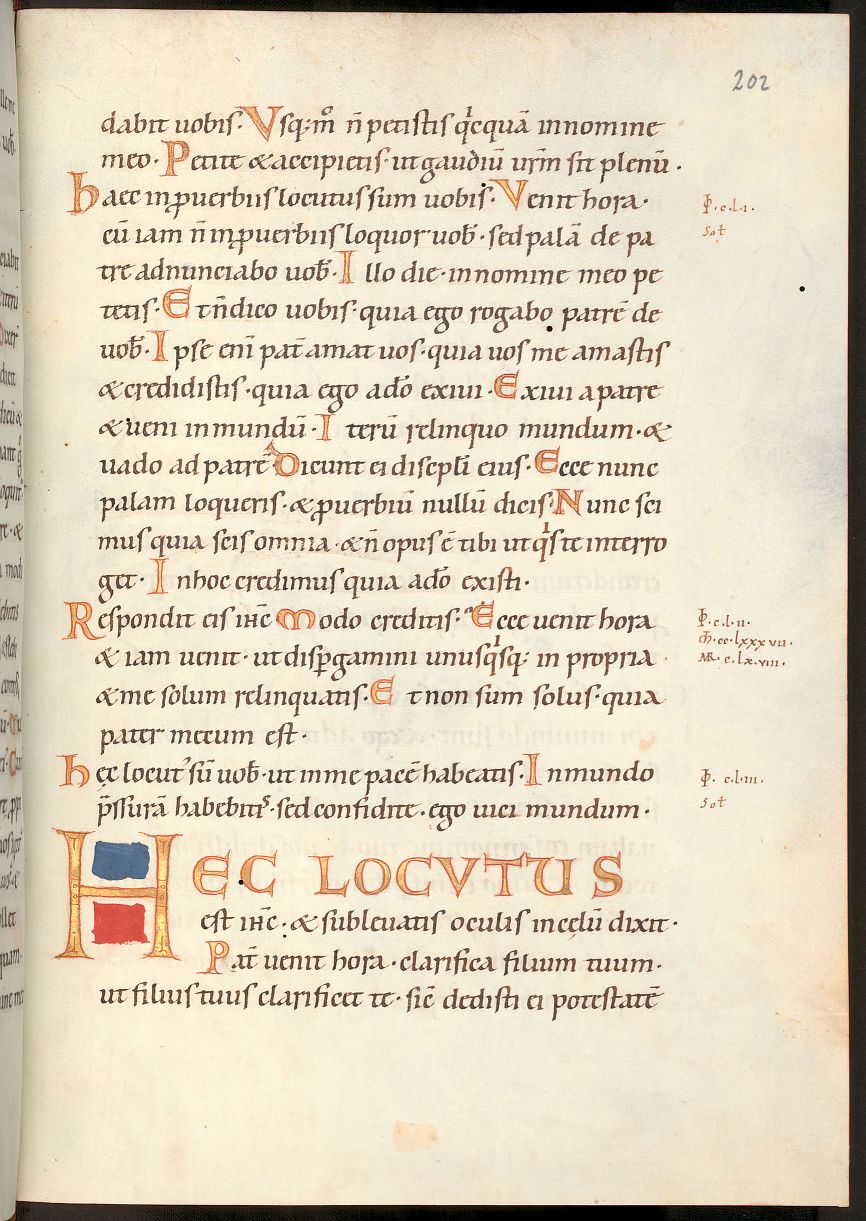 202
dabit uobis. Vsq; m̊ n̄ petistis qͥcquā innomine
meo. Petite & accipietis. ut gaudiū urm̄ sit plenū.
haec inꝓuerbiis locutus sum uobis. Venit hora.
cū iam n̄ inꝓuerbiis loquor uob̄. sed palā de pa
tre adnunciabo uob̄. Illo die. innomine meo pe
tetis. Et n̄ dico uobis. quia ego rogabo patrē de
uob̄. Ipse eni̅ pat̄ amat uos. quia uos me amastis
& credidistis. quia ego ado̅ exiui. Exiui apatre
& ueni inmundū. Iterū relinquo mundum. &
uado ad patrē. Dicunt ei discipl̄i eius. Ecce nunc
palam loqueris. & ꝓuerbiū nullū dicis. Nunc sci
mus quia scis omnia. & n̄ opus ē tibi ut qͥs te interro
get. Inhoc credimus quia ado̅ existi.
Respondit eis ihc̄ Modo creditis. Ecce uenit hora
& iam uenit. ut disꝑgamini unusqͥsq; in propria
& me solum relinquatis. Et non sum solus. quia
pater mecum est.
hęc locutꝰ sū uob̄. ut inme pacē habeatis. Inmundo
p̄ssurā habebitis. sed confidite. ego uici mundum.
HEC LOCVTUS
est ihc̄. & subleuatis oculis incęlū dixit.
Pat̄ uenit hora. clarifica filium tuum.
ut filius tuus clarificet te. sic̄ dedisti ei potestatē
Io̅.c.l.i.
sol̄
Io̅.c.l.ii.
M̄.cc.lxxxvii.
MR.c.lx.viii.
Io̅.c.l.iii.
sol̄